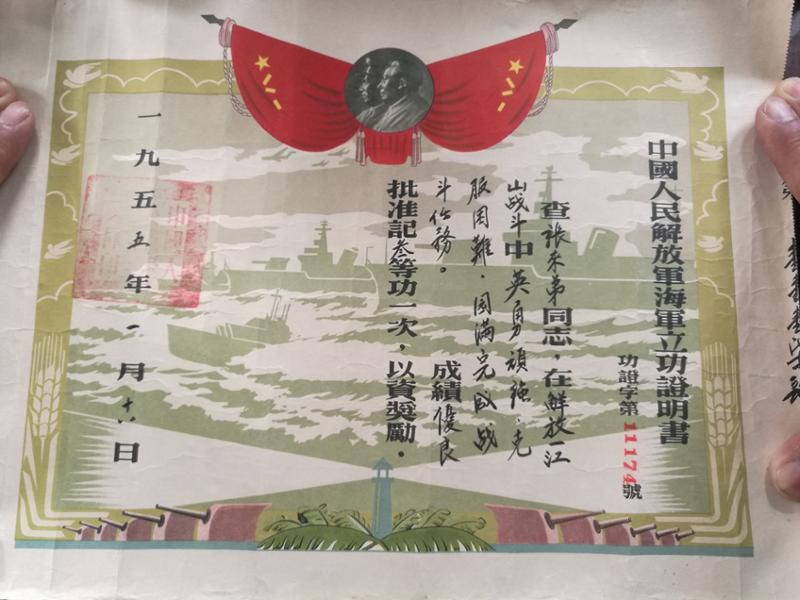 中國人民解放軍海軍立功證明書
功證字第11174號
查張來弟同志,在解放一江
山战斗中英勇頑強,克
服困難,圆满完成战
斗任務。成績優良
批准記叁等功一次,以資獎勵.
一九五五年一月十八日